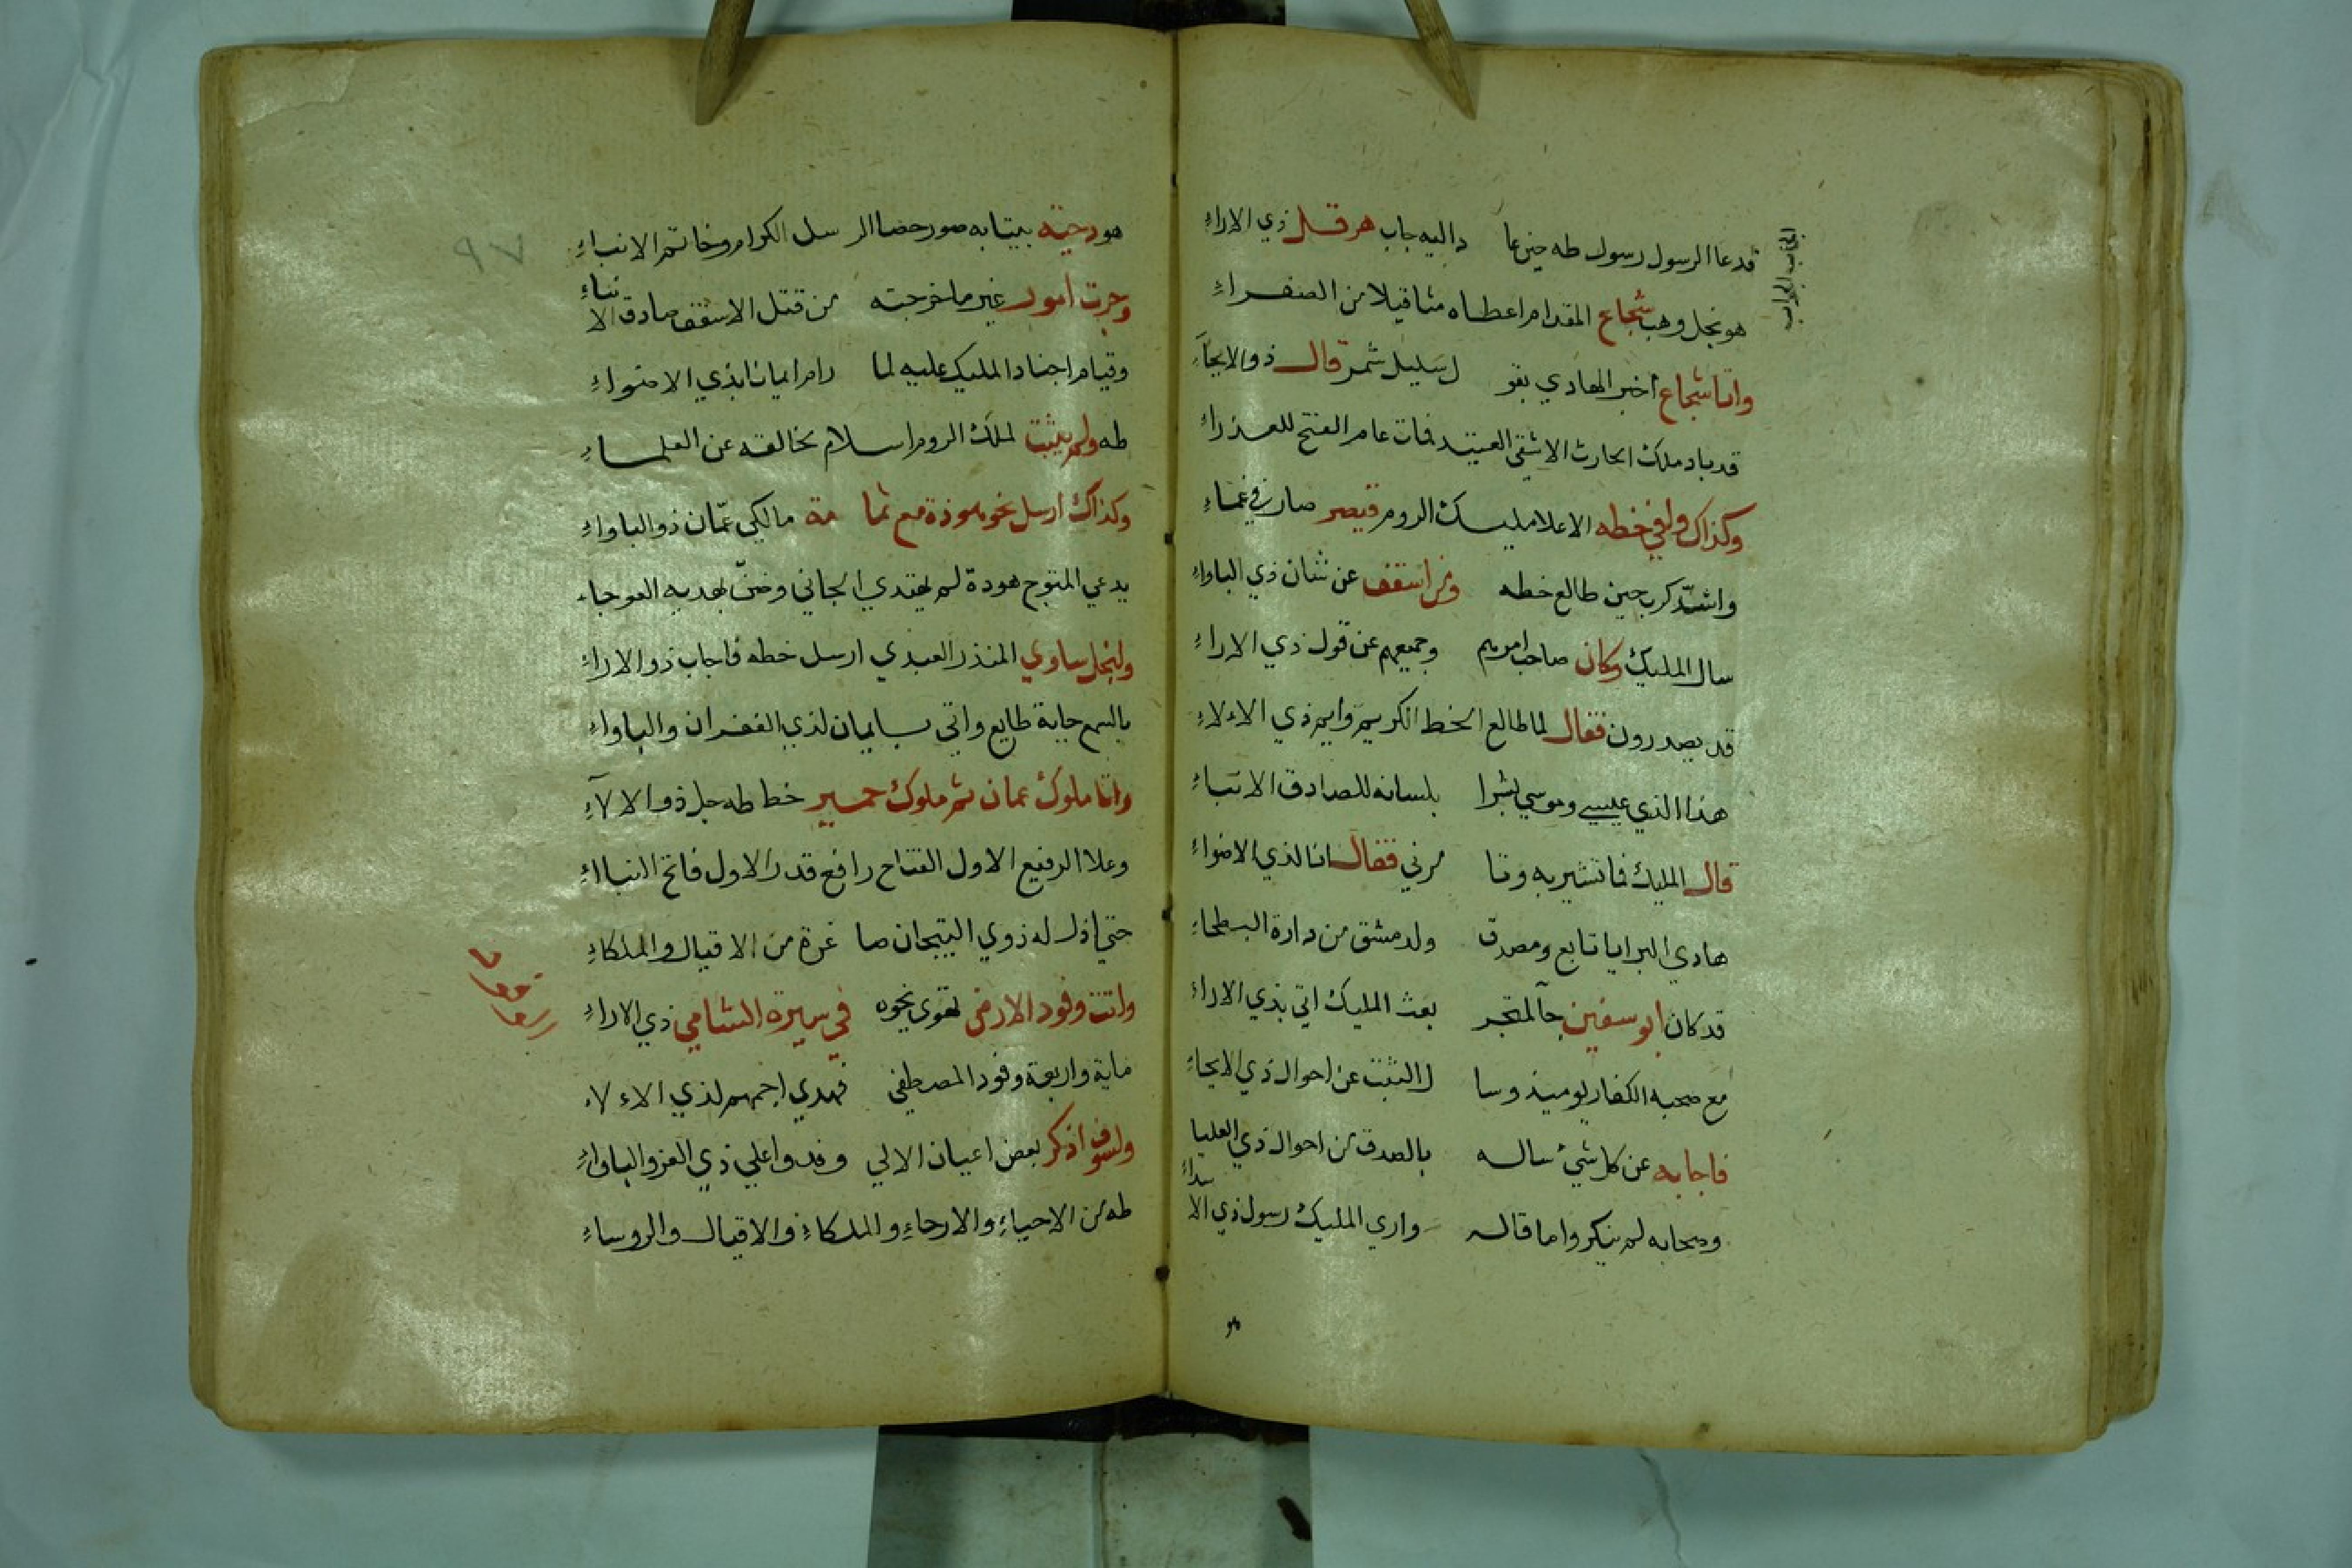 قد عا الرسول رسول طه حين عا داليه جاب هرقل ذي الاراءِ
هو نجل وهب شجاع المقدام اعطاه مثاقيلا من الصفراءِ
واتا شجاع اخبر الهادي بقو ل سليل شمر قال ذو الايحآءِ
قد باد ملك الحارث الاشقى العتيد فمات عام الفتح للعذراءِ
وكذاك وافى خطه الاعلا مليك الروم قيصر صار في غماءِ
واشتد كرب حين طالع خطه ومن اسقف عن شان ذي الباواءِ
سال المليك وكان صاحب امرهم وجميعهم عن قول ذي الاراءِ
قد يصدرون فقال لما طالع الخط الكريم وايم ذي الاءلاءِ
هذا الذي عيسى وموسى بشرا بلسانه للصادق الانباءِ
قال المليك فما تشير به وتا مرني فقال انا لذي الاضواءِ
هادي البرايا تابع ومصدق ولدمشق من دارة البطحاءِ
قد كان ابو سفين جآ لمتجر بعث المليك اتي بذي الاراءِ
مع صحبه الكفار يوميذ وسا ل الثبت عن احوال ذي الايحاءِ
فاجابه عن كل شيء ساله بالصدق من احوال ذي العلياء
وصحابه لم ينكروا ما قاله واري المليك رسول ذي الا
سداءِ
هو
هو دحية بيتا به صور حضا الر سل الكرام وخاتم الانباءِ
وجرت امور غير ما خرجته من قتل الاسقف صادق الا
نباءِ
وقيام اجناد المليك عليه لما رام ايمانا بذي الاضواءِ
طه ولم يثبت لملك الروم اسلام بخالقه عن العلماءِ
وكذاك ارسل نحو هوذة مع ثما مة مالكي عمّان ذو الباواءِ
يدعي المتوج هودة لم يهتدي الجاني وضنّ بهديه العوجاء
ولنجل ساوي المنذر العبدي ارسل خطه فاجاب ذو الاراءِ
بالسمع جابة طايع واتي بايمان لذي الغفران والباواءِ
واتا ملوك عمان ثم ملوك حمير خط طه جل ذو الالآءِ
وعلا الرفيع الاول الفتاح رافع قدر الاول فاتح النباءِ
حتى اذل له ذوي التيجان صا غرة من الاقيال والملكاءِ
واتت وفود الارض تقوى نحوه في سيرة الشامي ذي الاراءِ
ماية واربعة وفود المصطفي فهدي اجمهم لذي الاءلاء
ولسوف اذكر بعض اعيان الالي وفدوا علي ذي العز والباواءِ
طه من الاحياءِ والارحاءِ والملكاءِ والاقيال والروساءِ